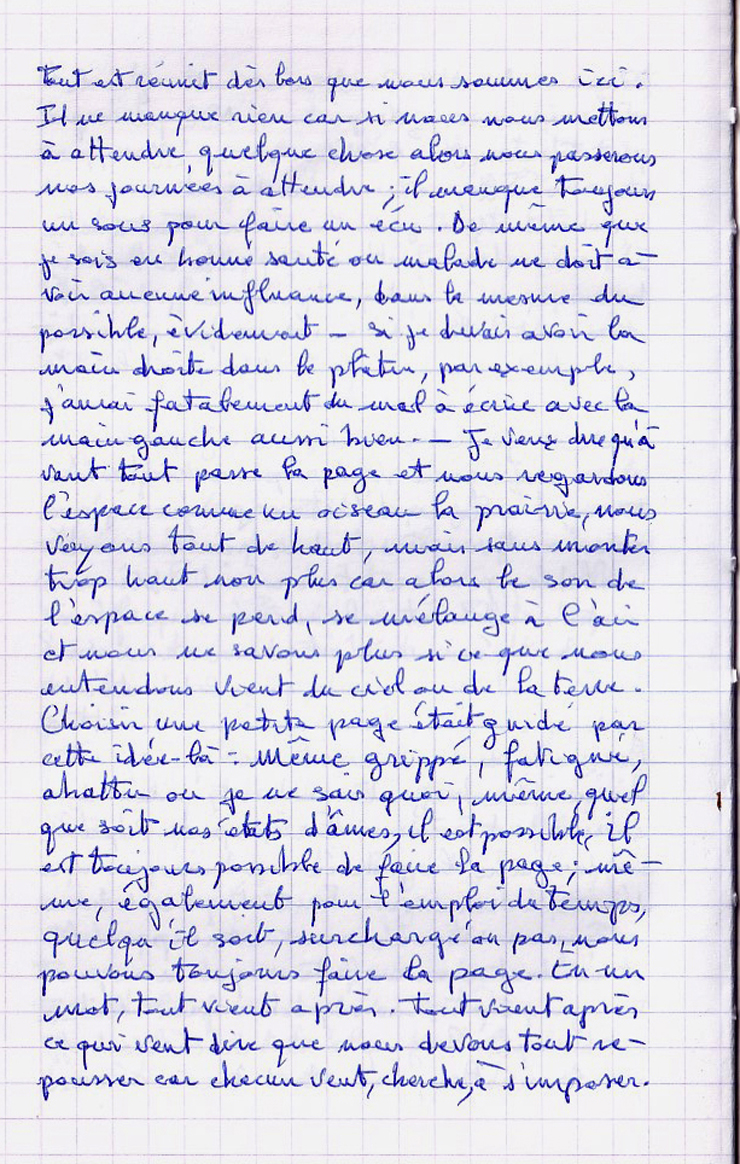 Tout est réunit dès lors que nous sommes ici.
Il ne manque rien car si nous nous mettons
à attendre quelque chose alors nous passerons
nos journées à attendre ; il manque toujours
un sous pour faire un écu. De même que
je sois en bonne santé ou malade ne doit a-
voir aucune influance, dans la mesure du
possible, évidemment — si je devais avoir la
main droite dans le plâtre, par exemple,
j'aurai fatalement du mal à écrire avec la
main gauche aussi bien. — Je veux dire qu'a
vant tout passe la page et nous regardons
l'espace comme un oiseau la prairie, nous
voyons tout de haut, mais sans monter
trop haut non plus car alors le son de
l'espace se perd, se mélange à l'air
et nous ne savons plus si ce que nous
entendons vient du ciel ou de la terre.
Choisir une petite page était guidé par
cette idée-là : même grippé, fatigué,
abattu ou je ne sais quoi, même, quel
que soit nos états d'âmes, il est possible, il
est toujours possible de faire la page ; mê-
me, également pour l'emploi du temps,
quelqu'il soit, surchargé ou pas, nous
pouvons toujours faire la page. En un
mot, tout vient après. Tout vient après
ce qui veut dire que nous devons tout re-
pousser car chacun veut, cherche, à s'imposer.